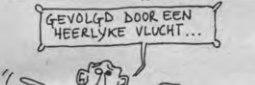 GEVOLGD DOOR EEN
HEERLYKE VLUCHT...